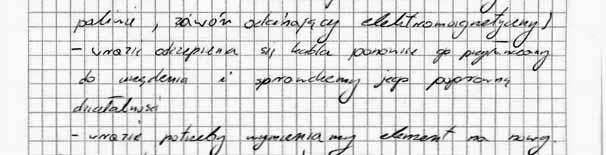 paliwie, zawór odcinający elektromagnetyczny)
- wrazie odczepienia się kabla ponownie go przyłączamy
do urządzenia i sprawdzamy jego poprawną
działalność
- wrazie potrzeby wymieniamy element na nowy.